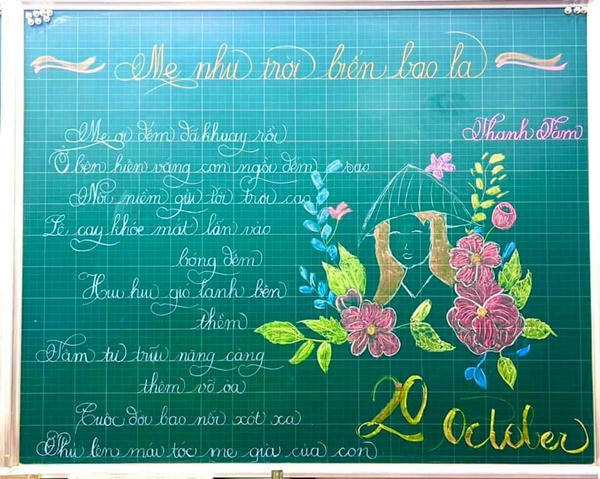 Mẹ như trời biển bao la
Thanh Tâm
Mẹ ơi đêm đã khuya rồi
Ở bên hiên vắng con ngồi đếm sao
Nỗi niềm gửi tới trời cao
Lệ cay khóe mắt lăn vào
bóng đêm
Hưu hưu gió lạnh bên
thềm
Tâm tư trĩu nặng càng
thêm vỡ òa
Cuộc đời bao nỗi xót xa
Phủ lên mái tóc mẹ già của con
20 October